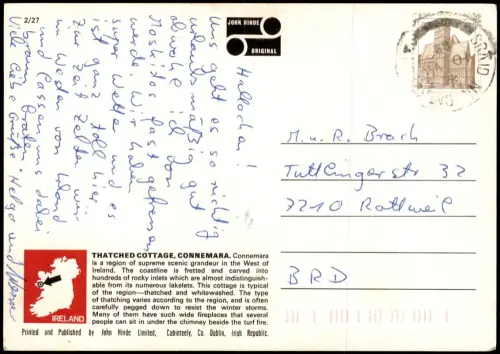 2/27
JOHN HINDE
ORIGINAL
Hallöchen!
Uns geht es so richtig
urlaubsmäßig gut
obwohl ich von
Moskitos fast gefressen
werde. Wir haben
super Wetter und es
ist ganz toll hier.
Zur Zeit zelten wir
im Westen von Irland
und lassen uns dabei
braun braten.
Viele liebe Grüße Helga und
M. u. R. Brach
Tuttlingerstr. 32
7210 Rottweil
BRD
THATCHED COTTAGE, CONNEMARA. Connemara
is a region of supreme scenic grandeur in the West of
Ireland. The coastline is fretted and carved into
hundreds of rocky inlets which are almost indistinguish-
able from its numerous lakelets. This cottage is typical
of the region—thatched and whitewashed. The type
of thatching varies according to the region, and is often
carefully pegged down to resist the winter storms.
Many of them have such wide fireplaces that several
people can sit in under the chimney beside the turf fire.
IRELAND
Printed and Published by John Hinde Limited, Cabinteely, Co. Dublin, Irish Republic.